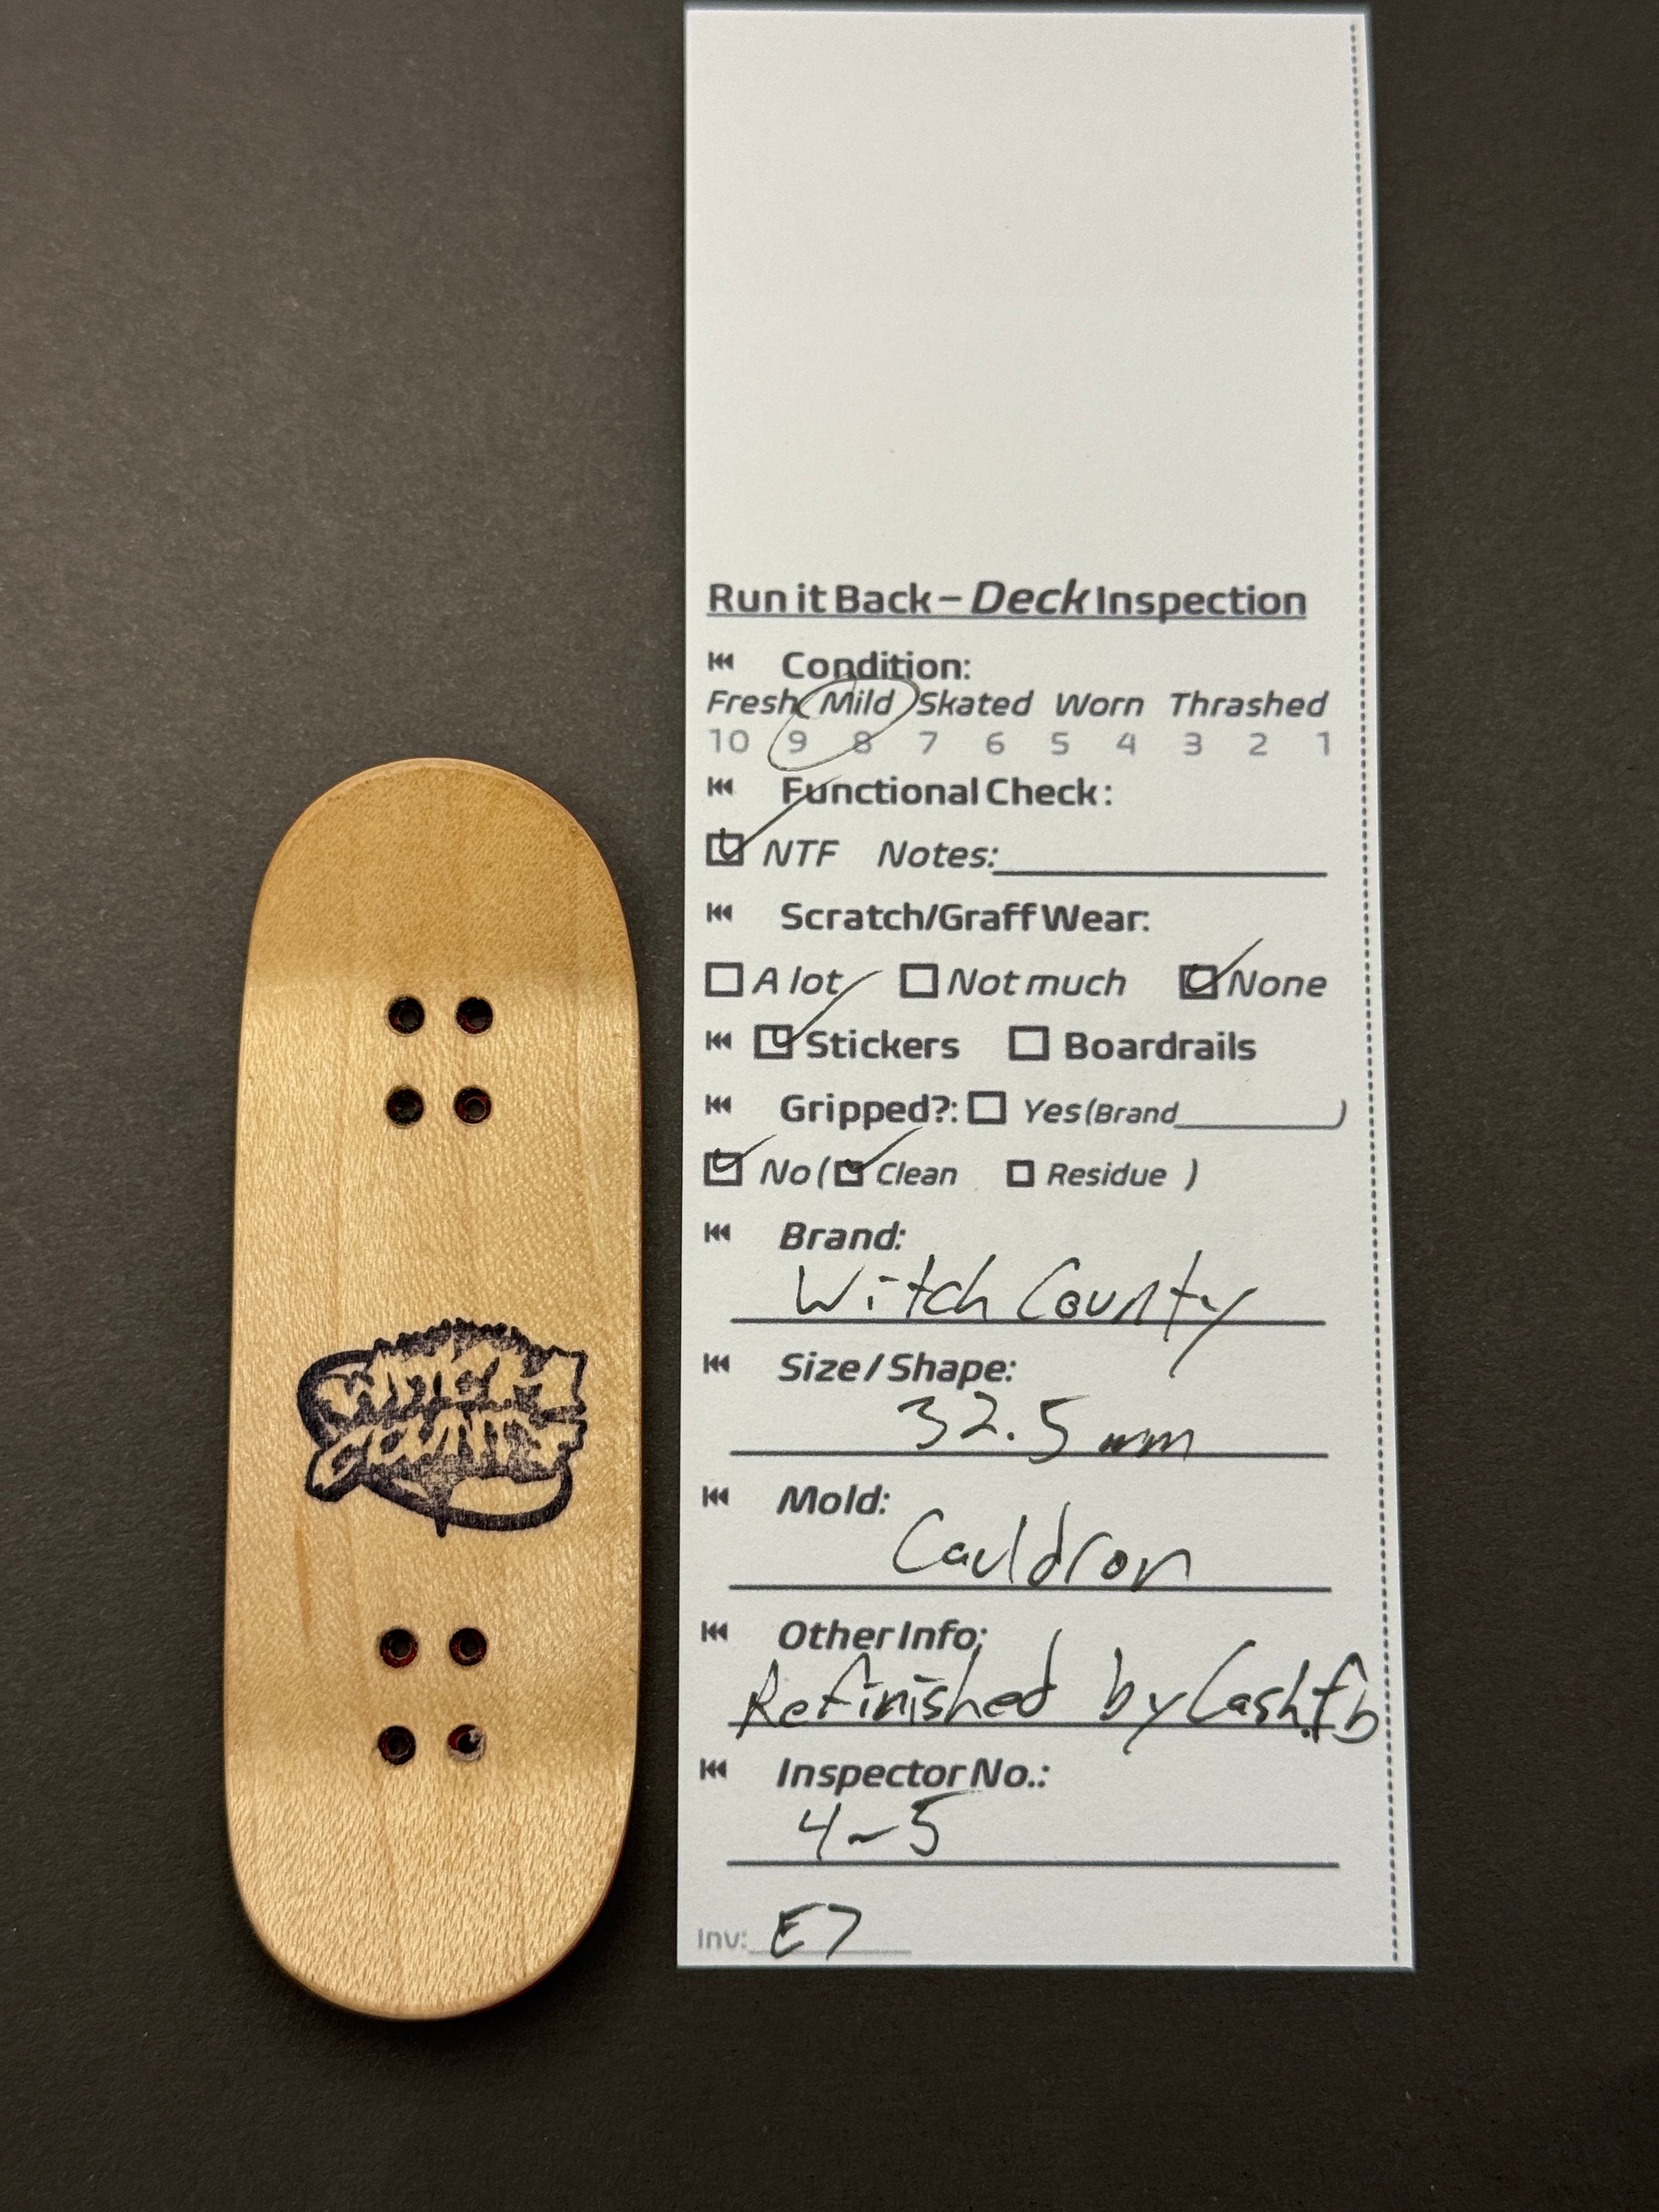 Run it Back – Deck Inspection
Condition:
Fresh Mild Skated Worn Thrashed
10 9 8 7 6 5 4 3 2 1
Functional Check:
NTF Notes:
Scratch/Graff Wear:
A lot Not much None
Stickers Boardrails
Gripped?: Yes (Brand )
No ( Clean Residue )
Brand:
Witch County
Size/Shape:
32.5 mm
Mold:
Cauldron
Other Info:
Refinished by Cash.fb
Inspector No.:
4-5
Inv: E7